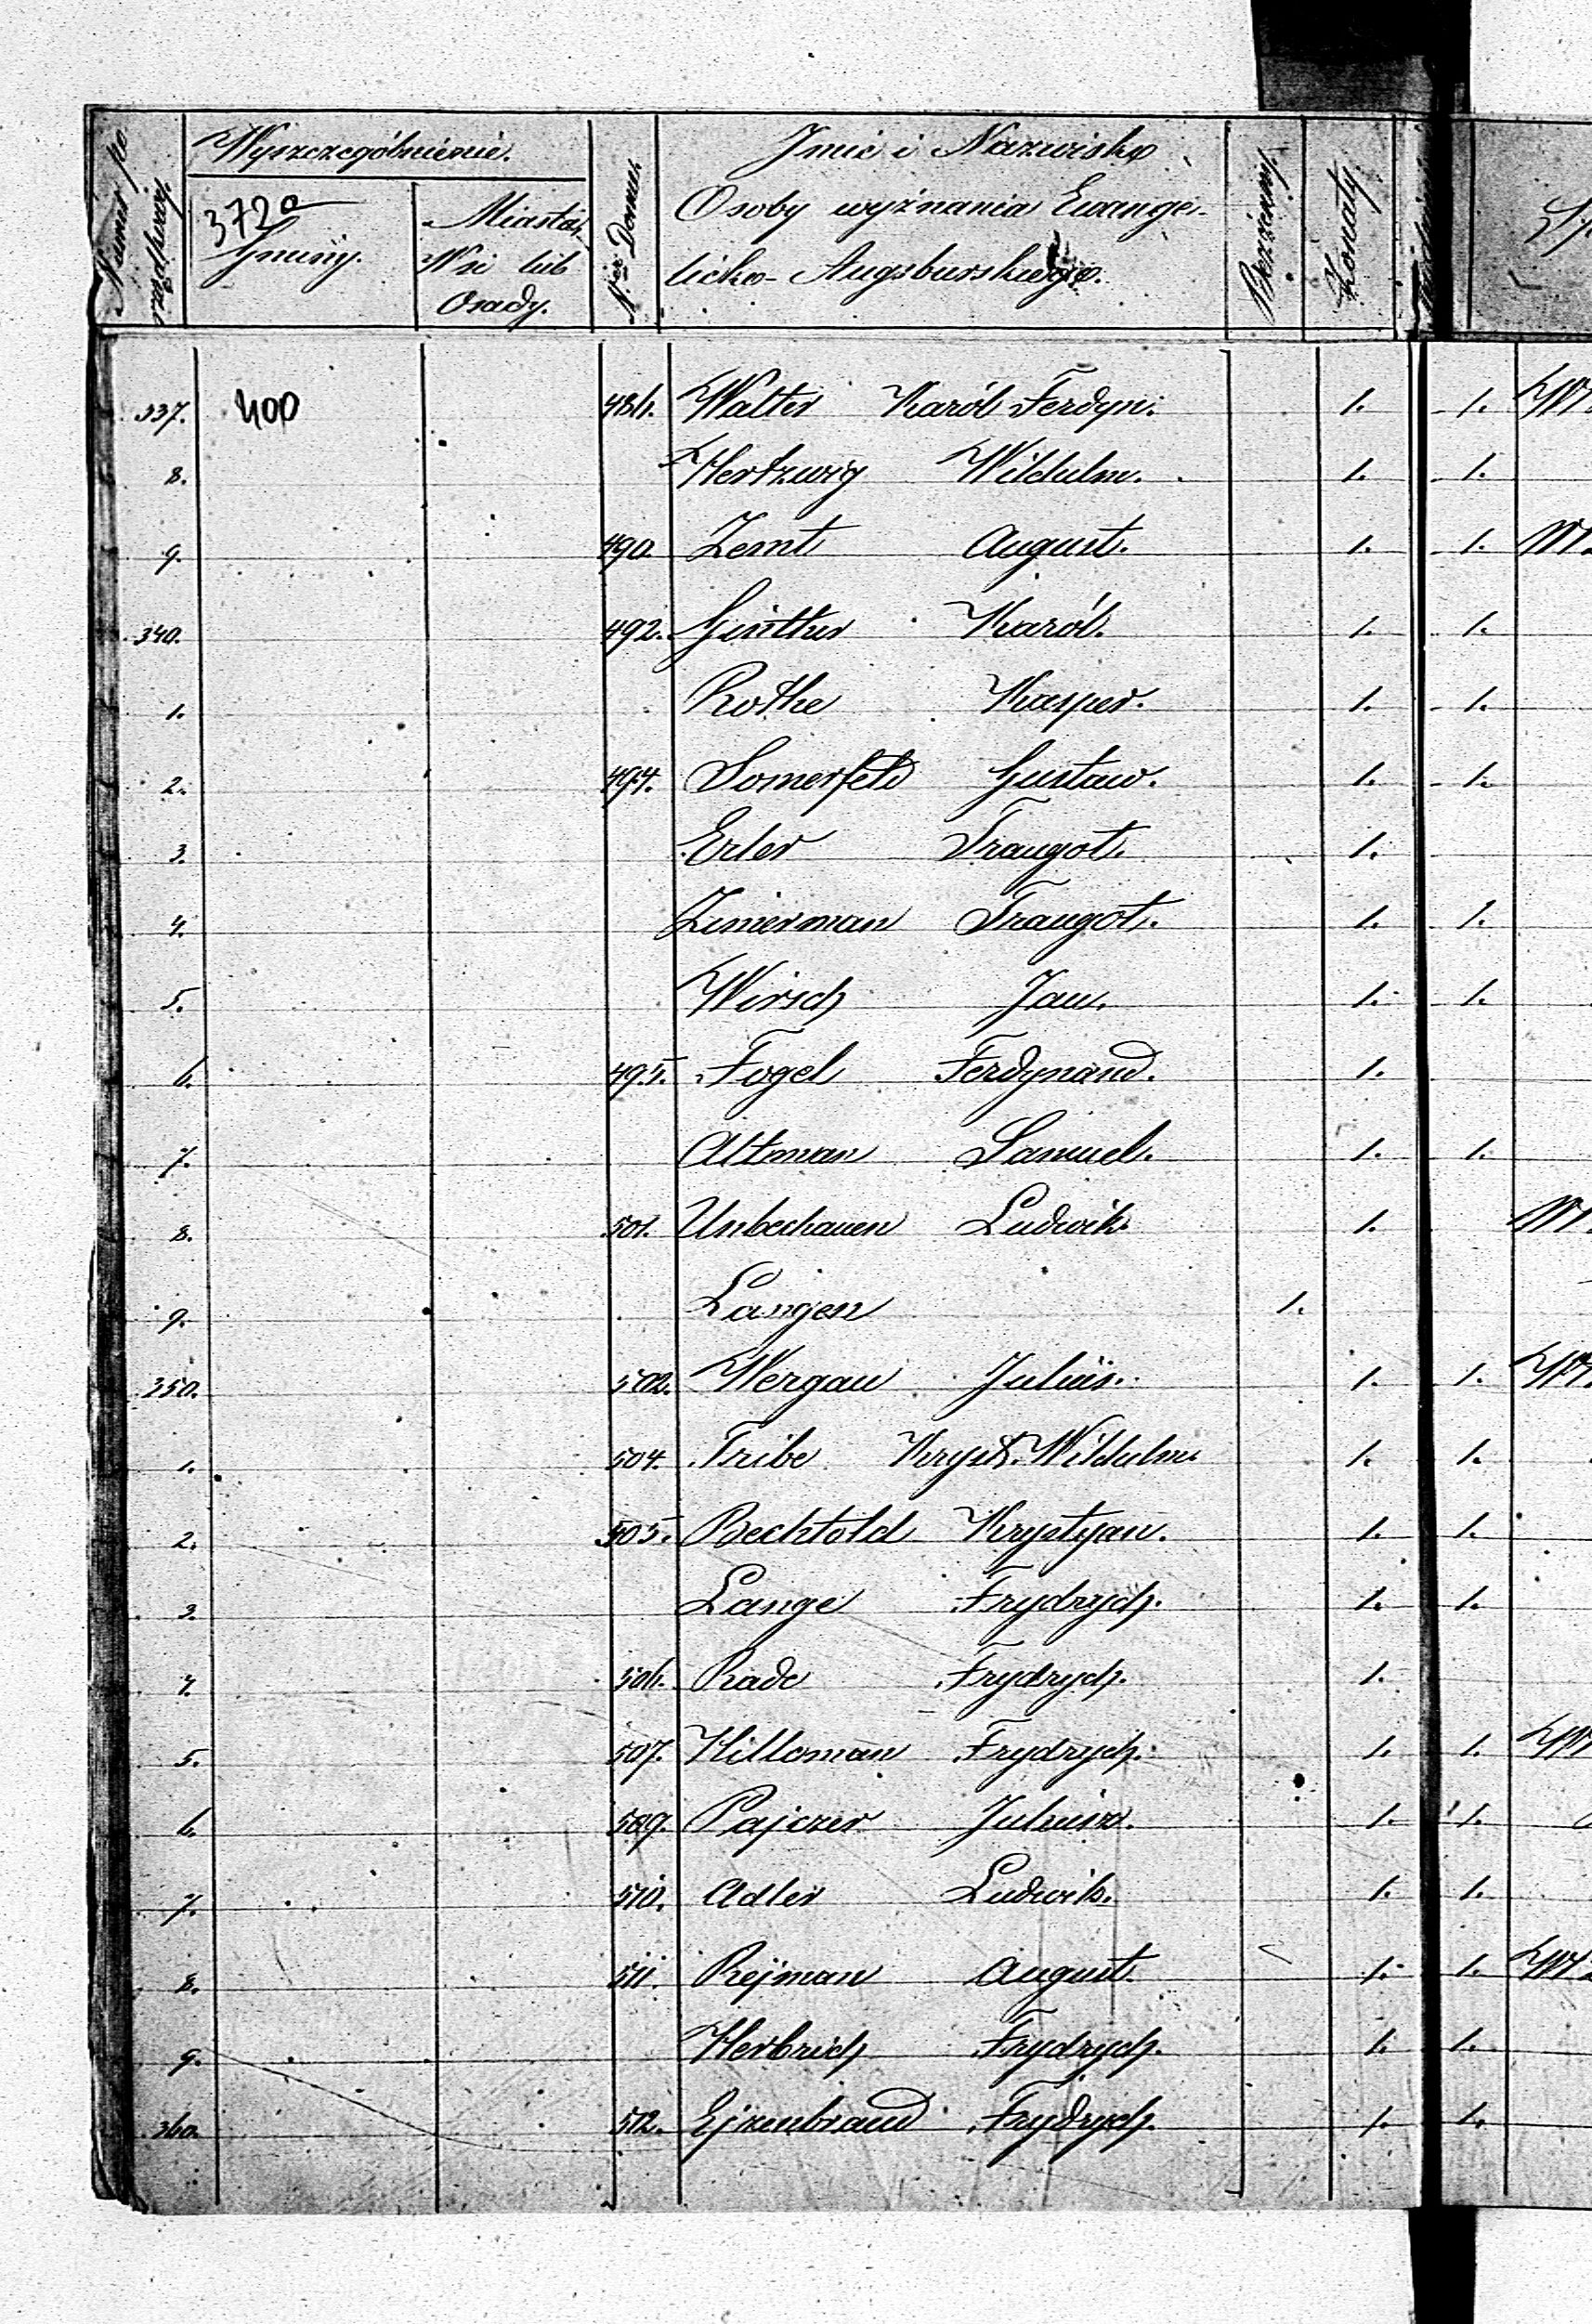 Numer po
rzędkowy.
Wyszczególnienie.
372a
Gminy.
Miasta,
Wsi lub
Osady.
N-er Domu.
Imie i Nazwisko
Osoby wyznania Ewange-
licko-Augsburskiego.
Bezżenny.
Żonaty
337. 400 486. Walter Karól Ferdyn: 1. 1.
8. Hertzwig Wilchelm. 1. 1.
9. 490. Zemt August. 1. 1.
340. 492. Ginther Karól. 1. 1.
1. Rothe Kasper. 1. 1.
2. 494. Somerfeld Gustaw. 1. 1.
3. Erler Traugot. 1.
4. Zimerman Traugot. 1. 1.
5. Hirsch Jan. 1. 1.
6. 495. Fogel Ferdynand. 1.
7. Altman Samuel. 1. 1.
8. 501. Unbechauen Ludwik. 1.
9. Langen 1.
350. 502. Wergau Julius. 1. 1.
1. 504. Tribe Kryst. Wilchelm 1. 1.
2. 505. Bechtold Krystyan. 1. 1.
3. Lange Frydrych. 1. 1.
4. 506. Rade Frydrych. 1.
5. 507. Hilloman Frydrych. 1. 1.
6. 509. Pajczer Juliusz. 1. 1.
7. 510. Adler Ludwik. 1. 1.
8. 511. Rejman August. 1. 1.
9. Herbrich Frydrych. 1. 1.
360. 512. Ejzenbraud Frydrych. 1. 1.